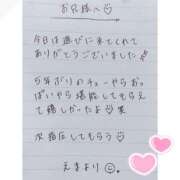 お兄様へ♡
今日は遊びに来てくれて
ありがとうございました
5年ぶりのチューやらおっ
ぱいやら堪能してもらえ
て嬉しかったよ♡笑
次指圧してもらう♡
えまより